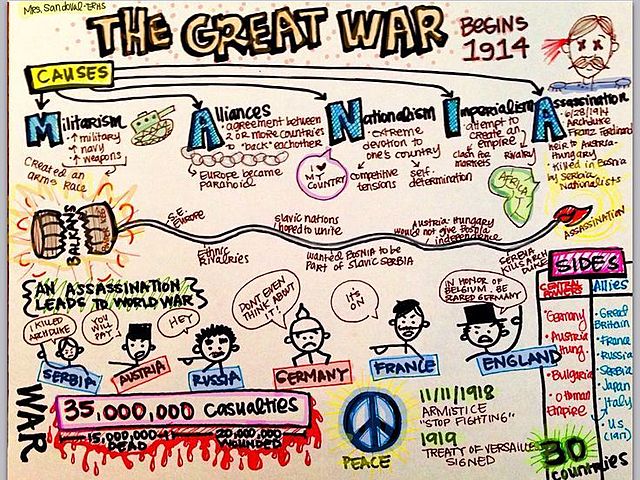 Mrs. Sandoval-ERHS
THE GREAT WAR
BEGINS
1914
CAUSES
Militarism
↑ military
↑ navy
↑ weapons
Created an
arms race
Alliances
• agreement between
2 or more countries
to "back" eachother
Europe became
paranoid
Nationalism
• extreme
devotion to
one's country
I ♥
MY
COUNTRY
competitive
tensions
self-
determination
Imperialism
• attempt to
create an
empire
clash for
markets
Rivalry
AFRICA
Assassination
• 6/28/1914
Archduke
Franz Ferdinand
heir to Austria-
Hungary
• killed in Bosnia
by Serbia
Nationalists
BALKANS
S.E.
EUROPE
Ethnic
Rivalries
slavic nations
hoped to unite
wanted BOSNIA to be
Part of Slavic SERBIA
Austria Hungary
would not give Bosnia
independence
SERBIA
KILLS ARCH
DUKE
ASSASSINATION
AN ASSASSINATION
LEADS TO WORLD WAR
I KILLED
ARCHDUKE
SERBIA
YOU
WILL
PAY
AUSTRIA
HEY
RUSSIA
DON'T EVEN
THINK ABOUT
IT!
GERMANY
IT'S
ON
FRANCE
IN HONOR OF
BELGIUM. BE
SCARED GERMANY!
ENGLAND
SIDES
CENTRAL
POWERS
• Germany
• Austria
Hung.
• Bulgaria
• Ottoman
Empire
Allies
• Great
Britain
• France
• Russia
• Serbia
Japan
Italy
U.S.
(1917)
30
countries
WAR
35,000,000 Casualties
15,000,000+
DEAD
20,000,000
WOUNDED
PEACE
11/11/1918
ARMISTICE
"STOP FIGHTING"
1919
TREATY OF VERSAILLES
SIGNED